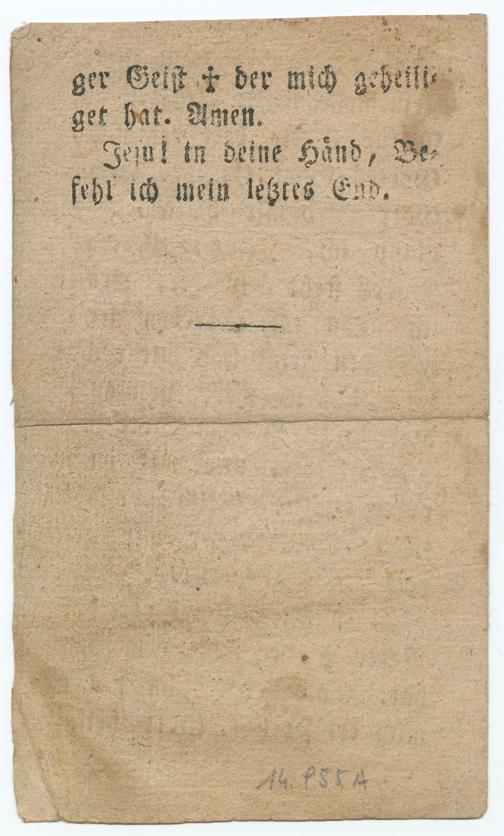 ger Geiſt ✝ der mich geheili⸗
get hat. Amen.
Jeſu! in deine Händ, Be⸗
fehl ich mein letztes End.
14.955A